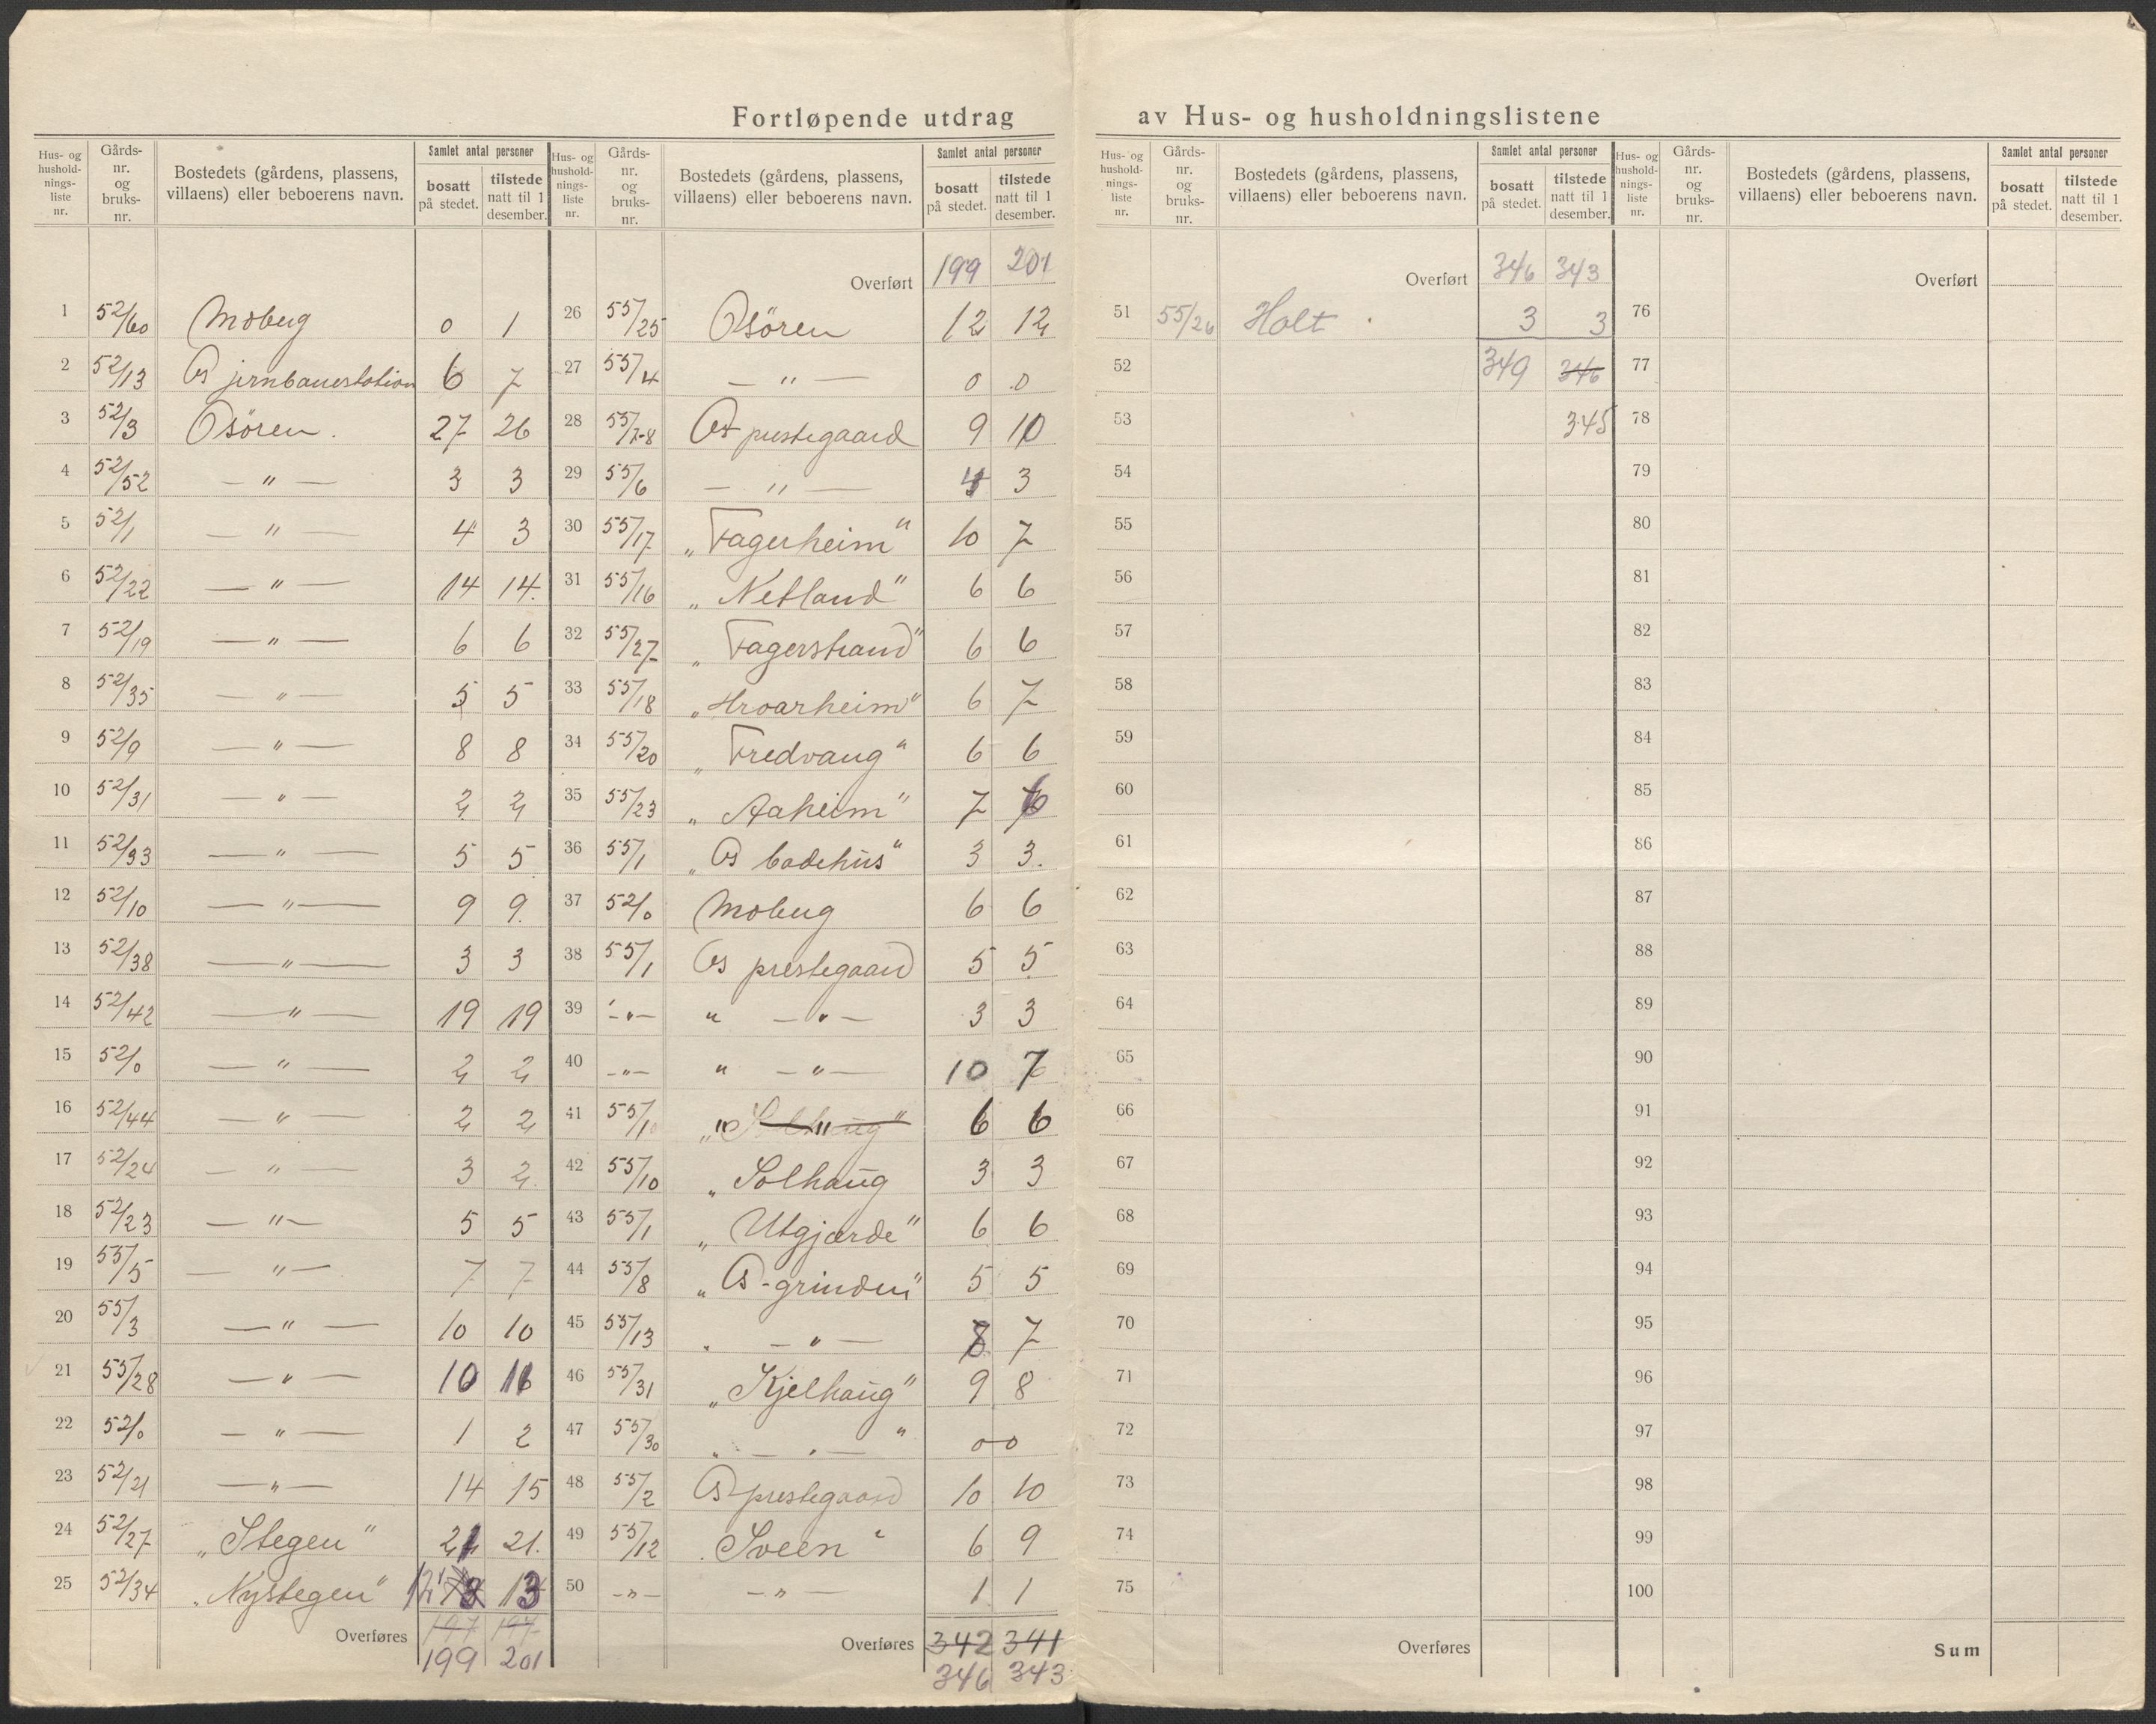 Fortløpende utdrag av Hus- og husholdningslistene
Hus- og hushold-nings-liste nr. Gårds-nr. og bruks-nr. Bostedets (gårdens, plassens, villaens) eller beboerens navn. Samlet antal personer bosatt på stedet. tilstede natt til 1 desember.
1 52/60 Moberg 0 1
2 52/13 Os jernbanestation 6 7
3 52/3 Osören. 27 26
4 52/52 — " — 3 3
5 52/1 — " — 4 3
6 52/22 — " — 14 14.
7 52/19 — " — 6 6
8 52/35 — " — 5 5
9 52/9 — " — 8 8
10 52/31 — " — 2 2
11 52/33 — " — 5 5
12 52/10 — " — 9 9.
13 52/38 — " — 3 3
14 52/42 — " — 19 19
15 52/0 — " — 2 2
16 52/44 — " — 2 2
17 52/24 — " — 3 2.
18 52/23 — " — 5 5
19 55/5 — " — 7 7
20 55/3 — " — 10 10
21 55/28 — " — 10
22 52/0 — " — 1 2
23 52/21 — " — 14 15
24 52/27 „Stegen" 21 21.
25 52/34 „Nystegen" 13
Overføres 197 197
199 201
Hus- og hushold-nings-liste nr. Gårds-nr. og bruks-nr. Bostedets (gårdens, plassens, villaens) eller beboerens navn. Samlet antal personer bosatt på stedet. tilstede natt til 1 desember.
Overført 199 201
26 55/25 Osören 12 12
27 55/4 — " — 0 0
28 55/7-8 Os prestegaard 9 10
29 55/6 — " — 4 3
30 55/17 „Fagerheim" 10 7
31 55/16 „Netland" 6 6
32 55/27 „Fagerstrand" 6 6
33 55/18 „Hroarheim" 6 7
34 55/20 „Fredvang" 6 6
35 55/23 „Aaheim" 7 6
36 55/1 „Os badehus" 3 3.
37 52/0 Moberg 6 6
38 55/1 Os prestegaard 5 5
39 — " — " — " — 3 3
40 — " — " — " — 10 7
41 55/1 „Solhaug" 6 6
42 55/10 „Solhaug 3 3
43 55/1 „Utgjærde" 6 6
44 55/8 „Os-grinden" 5 5
45 55/13 — " — 8 7
46 55/31 „Kjelhaug" 9 8
47 55/30 „ — " — " 0 0
48 55/2 Os prestegaard 10 10
49 55/12 „Sveen" 6 9
50 — " — — " — 1 1
Overføres 342 341
346 343
Hus- og hushold-nings-liste nr. Gårds-nr. og bruks-nr. Bostedets (gårdens, plassens, villaens) eller beboerens navn. Samlet antal personer bosatt på stedet. tilstede natt til 1 desember.
Overført 346 343
51 55/26 Holt 3 3
52 349 346
53 345
54
55
56
57
58
59
60
61
62
63
64
65
66
67
68
69
70
71
72
73
74
75
Overføres
Hus- og hushold-nings-liste nr. Gårds-nr. og bruks-nr. Bostedets (gårdens, plassens, villaens) eller beboerens navn. Samlet antal personer bosatt på stedet. tilstede natt til 1 desember.
Overført
76
77
78
79
80
81
82
83
84
85
86
87
88
89
90
91
92
93
94
95
96
97
98
99
100
Sum